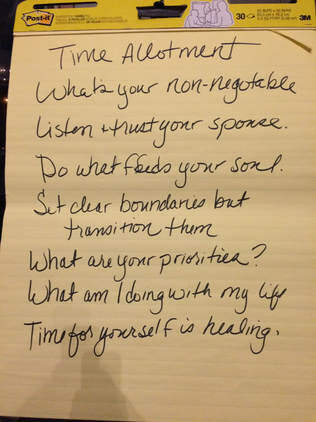 Post-it
30
3M
Time Allotment
What's your non-negotable
Listen + trust your spouse.
Do what feeds your soul.
Set clear boundaries but
transition them
What are your priorities?
What am I doing with my life
Time for yourself is healing.